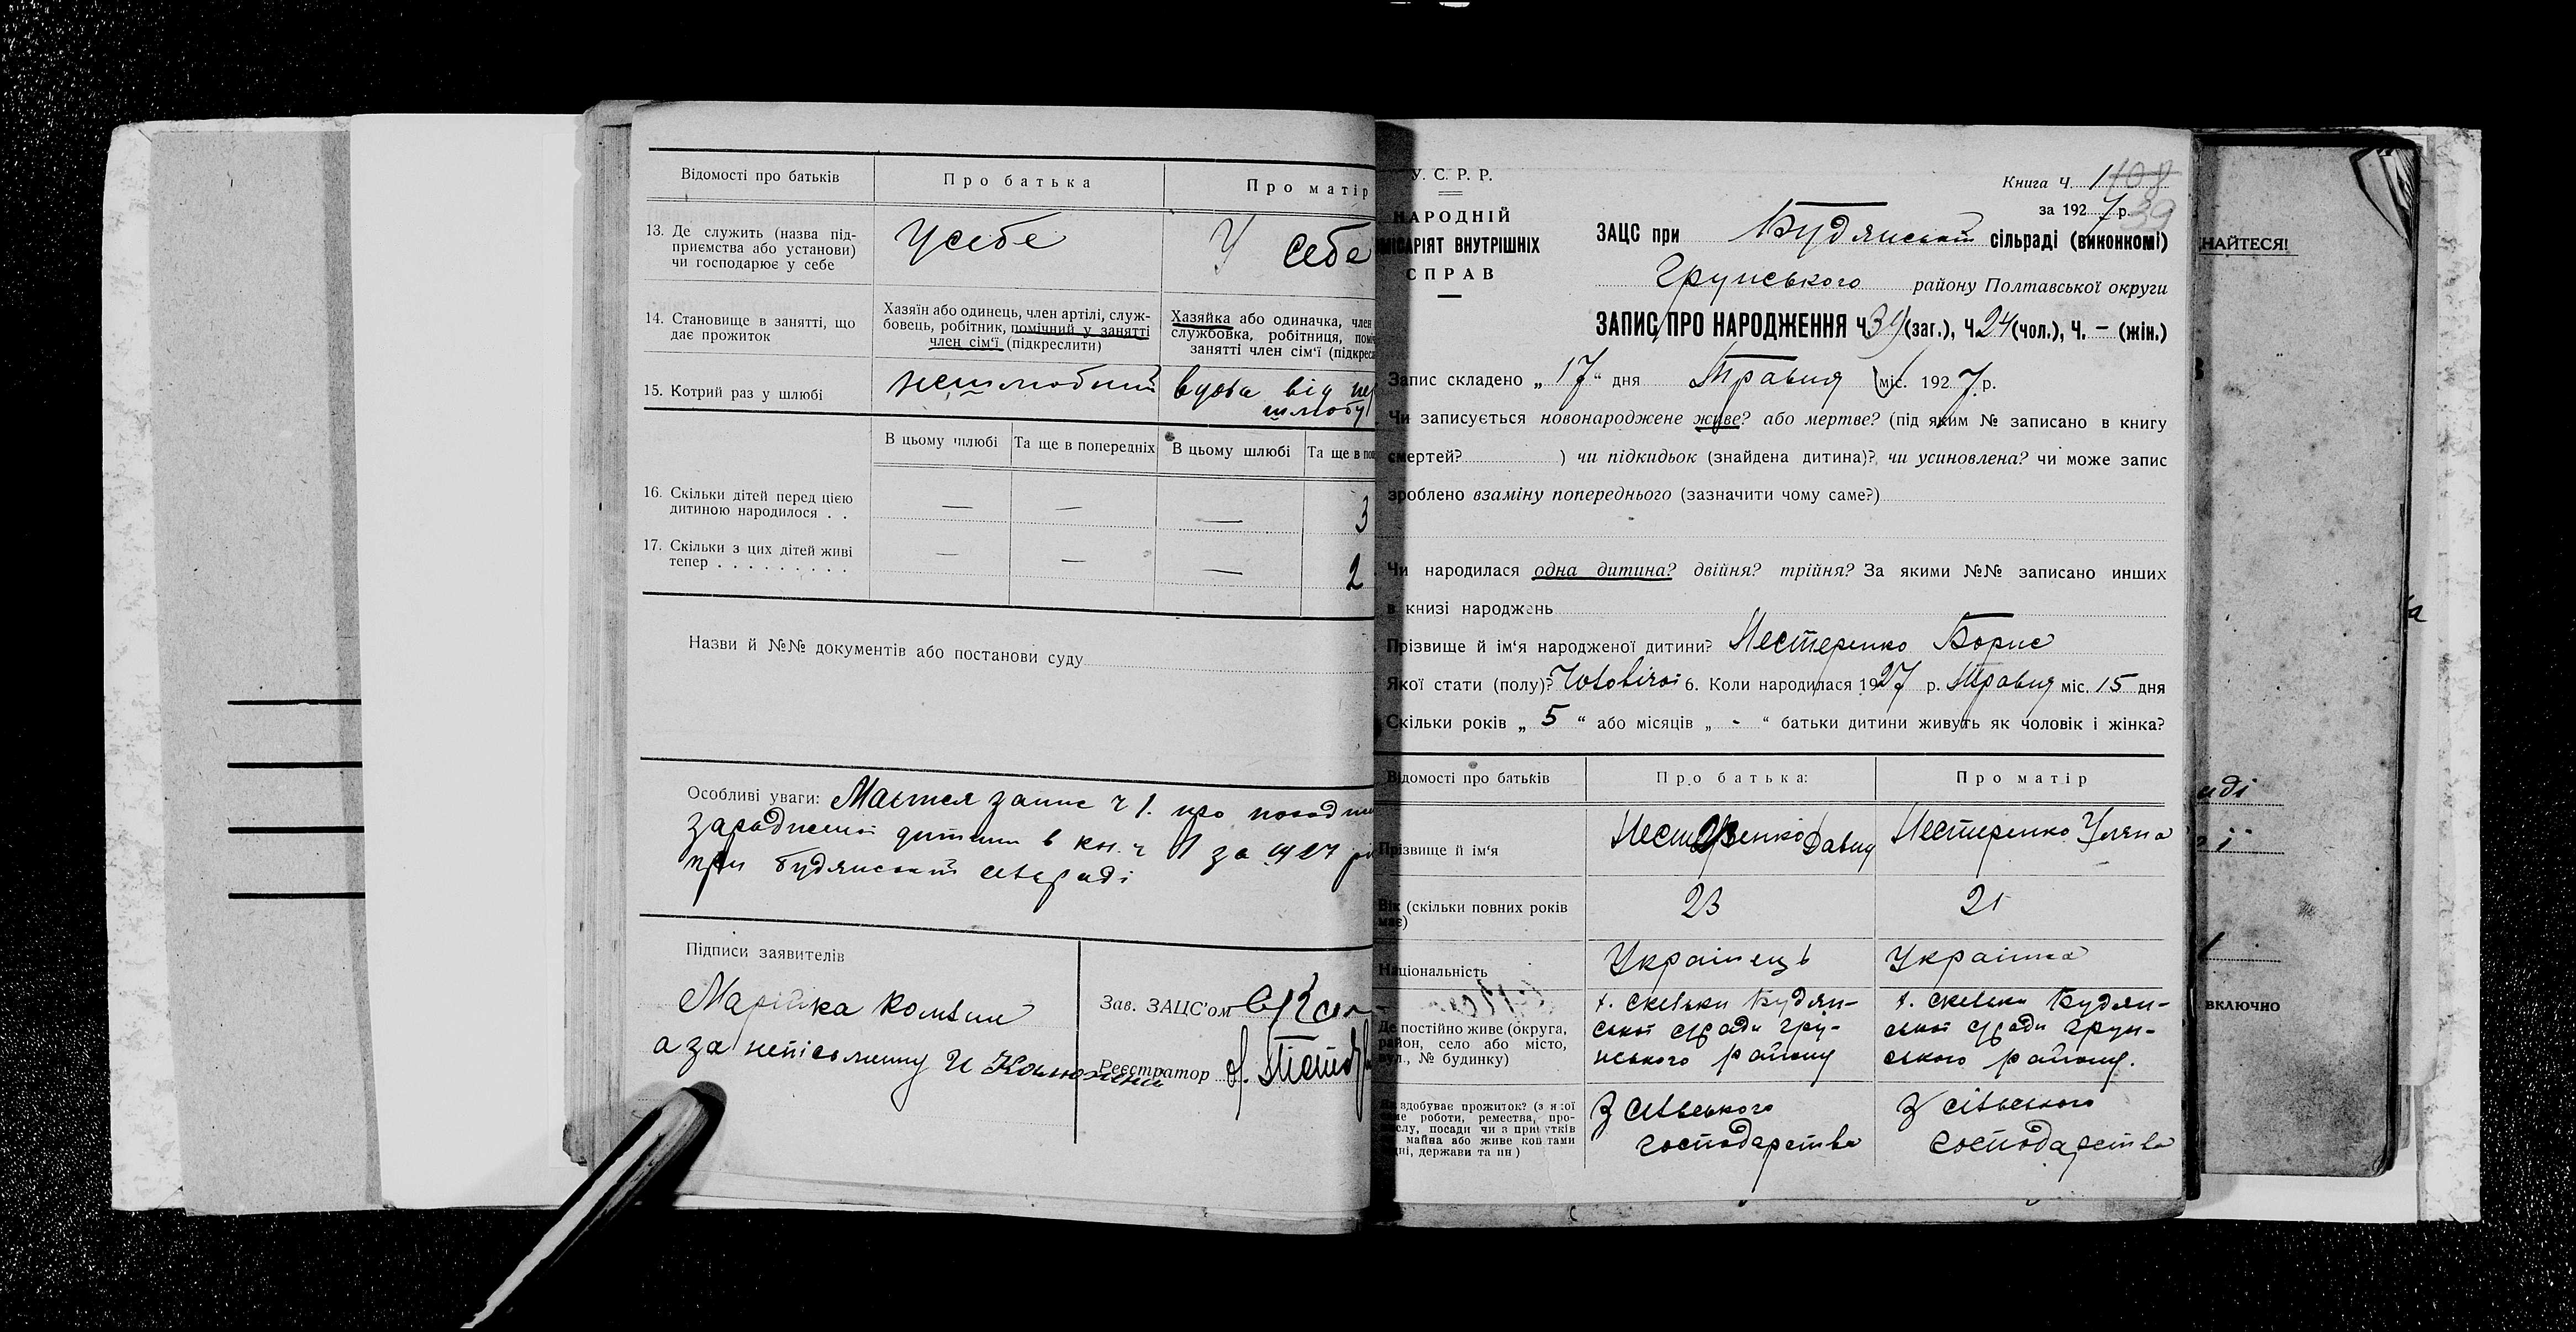 Відомості про батьків
Про батька
Про матір
13. Де служить (назва під-
приємства або установи)
чи господарює у себе
У себе
У себе
14. Становище в занятті, що
дає прожиток
Хазяїн або одинець, член артілі, служ-
бовець, робітник, помічний у занятті
член сім'ї (підкреслити)
Хазяйка або одиначка, член
службовка, робітниця,
занятті член сім'ї
15. Котрий раз у шлюбі
нешлюбний
вдова від
шлюбу
В цьому шлюбі
Та ще в попередніх
В цьому шлюбі
Та ще в
16. Скільки дітей перед цією
дитиною народилося . .
— — — 3
17. Скільки з цих дітей живі
тепер . . . . . . . . .
— — — 2
Назви й №№ документів або постанови суду
Особливі уваги: Мається запис ч 1. про
дитини в кн. ч 1 за 1927
при Будянській сільраді
Підписи заявителів
Зав. ЗАЦС'ом
а за неписьменну
Реєстратор
У. С. Р. Р.
НАРОДНІЙ
КОМІСАРІЯТ ВНУТРІШНІХ
СПРАВ
Книга Ч. 1
за 1927 р.
39
ЗАЦС при Будянській сільраді (виконкомі)
Грунського району Полтавської округи
ЗАПИС ПРО НАРОДЖЕННЯ Ч. 39 (заг.), Ч. 24 (чол.), Ч. — (жін.)
Запис складено „ 17 “ дня Травня міс. 1927 р.
Чи записується новонароджене живе? або мертве? (під яким № записано в книгу
смертей? ) чи підкидьок (знайдена дитина)?, чи усиновлена? чи може запис
зроблено взаміну попереднього (зазначити чому саме?)
Чи народилася одна дитина? двійня? трійня? За якими №№ записано инших
в книзі народжень
Прізвище й ім'я народженої дитини? Нестеренко Борис
Якої стати (полу)? Чоловічої 6. Коли народилася 1927 р. Травня міс. 15 дня
Скільки років „ 5 “ або місяців „ - “ батьки дитини живуть як чоловік і жінка?
Відомості про батьків
Про батька:
Про матір
Прізвище й ім'я
Нестеренко Давид
Нестеренко Уляна
Вік (скільки повних років
має)
23
21
Національність
Українець
Українка
Де постійно живе (округа,
район, село або місто,
вул., № будинку)
х. Скельки Будян-
ської с/ради Гру-
нського району
х. Скельки Будян-
ської с/ради Грун-
ського району.
здобуває прожиток? (з якої
роботи, ремества, про-
мислу, посади чи з прибутків
майна або живе коштами
держави та ин)
З сільського
господарства
З сільського
господарства
НАЙТЕСЯ!
включно